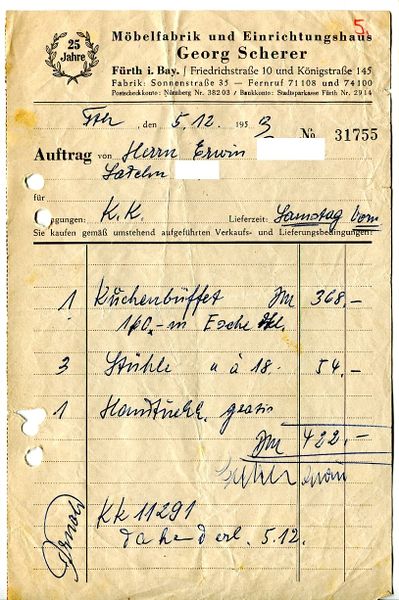 5.
25 Jahre
Möbelfabrik und Einrichtungshaus
Georg Scherer
Fürth i. Bay. / Friedrichstraße 10 und Königstraße 145
Fabrik: Sonnenstraße 35 — Fernruf 71108 und 74100
Postscheckkonto: Nürnberg Nr. 38203 / Bankkonto: Stadtsparkasse Fürth Nr. 2914
Fth , den 5.12. 1953
№ 31755
Auftrag von Herrn Erwin
für
gungen: K.K. Lieferzeit: Samstag Vorm
Sie kaufen gemäß umstehend aufgeführten Verkaufs- und Lieferungsbedingungen:
1 Küchenbüffet 368.–
160.–m Esche
3 Stühle à 18.– 54.–
1 gratis
422.–
KK 11291
5.12.